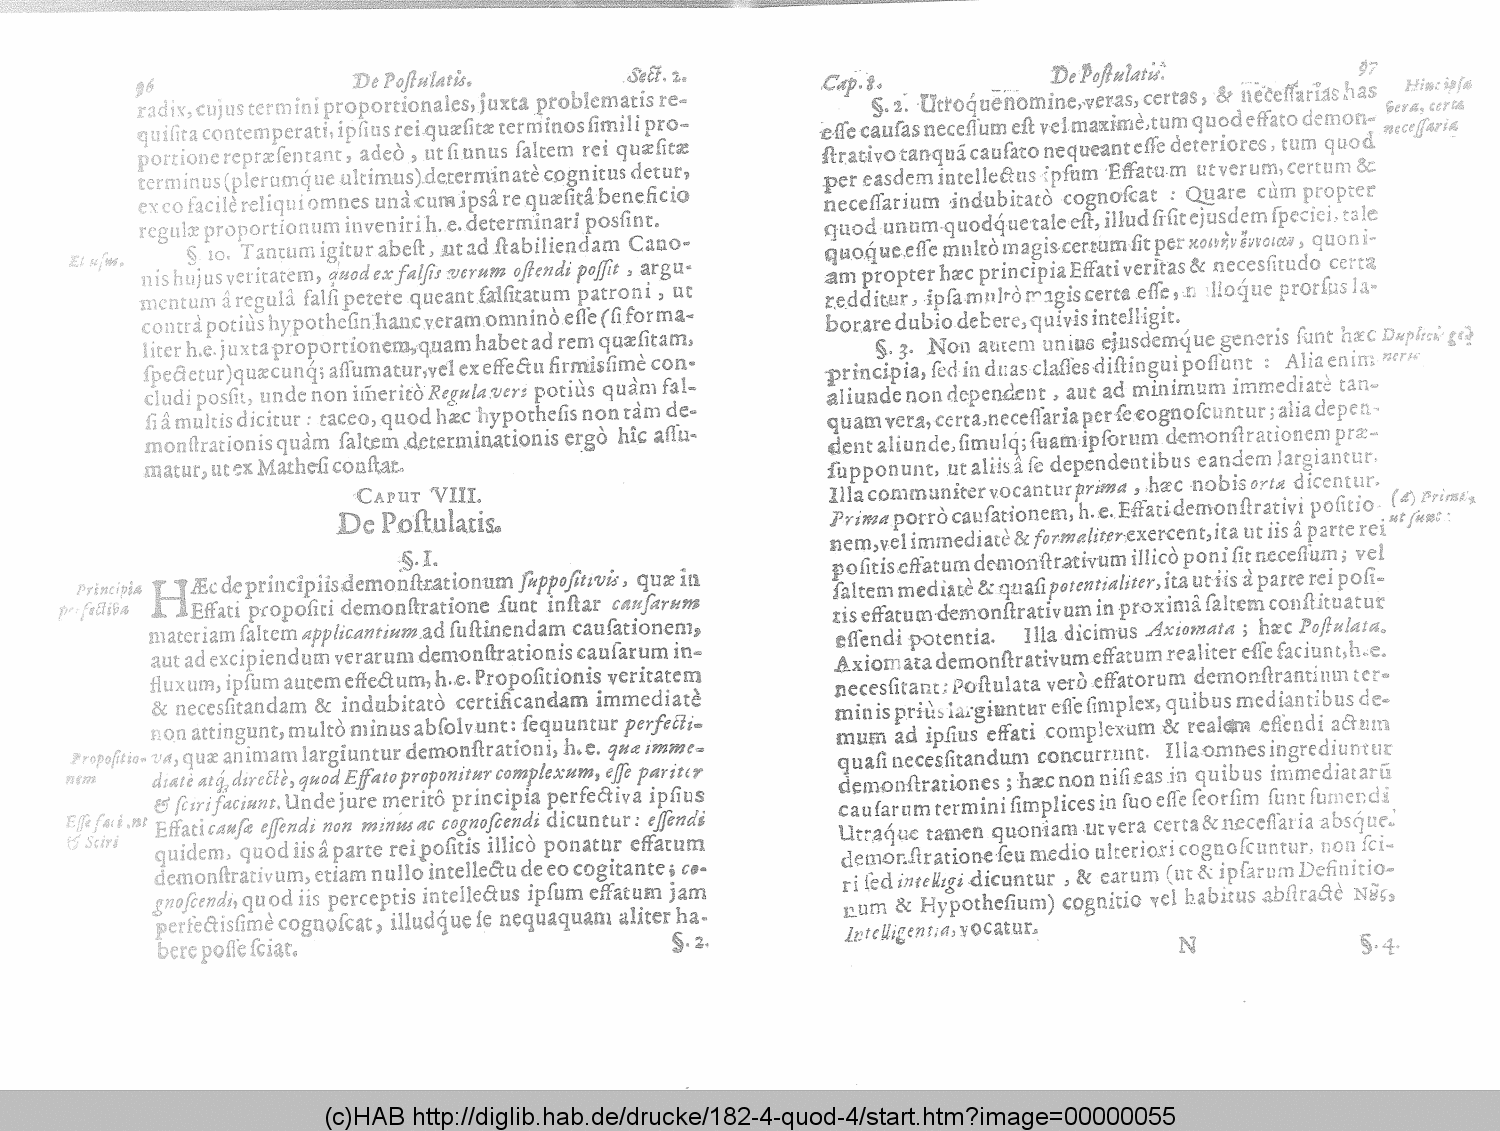 96 De Poſtulatis. Sect. 2.
radix, cujus termini proportionales, juxta problematis re-
quiſita contemperati, ipſius rei quæſitæ terminos ſimili pro-
portione repræſentant, adeò, ut ſi unus ſaltem rei quæſitæ
terminus (plerumq́ue ultimus) determinatè cognitus detur,
ex eo facilè reliqui omnes unà cum ipsâ re quæſitâ beneficio
regulæ proportionum inveniri h. e. determinari posſint.
§. 10. Tantum igitur abeſt, ut ad ſtabiliendam Cano-
nis hujus veritatem, quod ex falſis verum oſtendi poſſit, argu-
mentum â regulâ falſi petere queant falſitatum patroni, ut
contrà potiùs hypotheſin hanc veram omninò eſſe (ſi forma-
liter h. e. juxta proportionem, quam habet ad rem quæſitam,
ſpectetur) quæcunq́; aſſumatur, vel ex effectu firmisſimè con-
cludi posſit, unde non im̃eritò Regula veri potiùs quàm fal-
ſi â multis dicitur: taceo, quod hæc hypotheſis non tàm de-
monſtrationis quàm ſaltem determinationis ergò hîc aſſu-
matur, ut ex Matheſi conſtat.
CAPUT VIII.
De Poſtulatis.
§. I.
Principia
HÆc de principiis demonſtrationum ſuppoſitivis, quæ in
Effati propoſiti demonſtratione ſunt inſtar cauſarum
materiam ſaltem applicantium ad ſuſtinendam cauſationem,
aut ad excipiendum verarum demonſtrationis cauſarum in-
fluxum, ipſum autem effectum, h. e. Propoſitionis veritatem
& necesſitandam & indubitatò certificandam immediatè
non attingunt, multò minus abſolvunt: ſequuntur perfecti-
Propoſitio-
nem
va, quæ animam largiuntur demonſtrationi, h. e. quæ imme-
diatè atq́, directè, quod Effato proponitur complexum, eſſe pariter
& ſciri faciunt. Unde jure meritô principia perfectiva ipſius
& Sciri
Effati cauſæ eſſendi non minus ac cognoſcendi dicuntur: eſſendi
quidem, quod iis â parte rei poſitis illicò ponatur effatum
demonſtrativum, etiam nullo intellectu de eo cogitante; co-
gnoſcendi, quod iis perceptis intellectus ipſum effatum jam
perfectisſimè cognoſcat, illudq́ue ſe nequaquam aliter ha-
bere poſſe ſciat.
§. 2.
Cap. 8. De Poſtulatis. 97
§. 2. Utroq́ue nomine, veras, certas, & neceſſarias has
Hinc ipſa
vera, certa
neceſſaria
eſſe cauſas neceſſum eſt vel maximè, tum quod effato demon-
ſtrativo tanquã cauſato nequeant eſſe deteriores, tum quod
per easdem intellectus ipſum Effatum ut verum, certum &
neceſſarium indubitatò cognoſcat: Quare cùm propter
quod unumquodq́ue tale eſt, illud ſi ſit ejusdem ſpeciei, tale
quoq́ue eſſe multò magis certum ſit per κοινὴν ἔννοιαν, quoni-
am propter hæc principia Effati veritas & necesſitudo certa
redditur, ipſa multò magis certa eſſe, nulloq́ue prorſus la-
borare dubio debere, quivis intelligit.
§. 3. Non autem unius ejusdemq́ue generis ſunt hæc
principia, ſed in duas claſſes diſtingui poſſunt: Alia enim
aliunde non dependent, aut ad minimum immediatè tan-
quam vera, certa, neceſſaria per ſe cognoſcuntur; alia depen-
dent aliunde, ſimulq́; ſuam ipſorum demonſtrationem præ-
ſupponunt, ut aliis â ſe dependentibus eandem largiantur.
Illa communiter vocantur prima, hæc nobis orta dicentur.
Prima porrò cauſationem, h. e. Effati demonſtrativi poſitio-
nem, vel immediatè & formaliter exercent, ita ut iis â parte rei
poſitis effatum demonſtrativum illicò poni ſit neceſſum; vel
ſaltem mediatè & quaſi potentialiter, ita ut iis à parte rei poſi-
tis effatum demonſtrativum in proximâ ſaltem conſtituatur
eſſendi potentia. Illa dicimus Axiomata; hæc Poſtulata.
Axiomata demonſtrativum effatum realiter eſſe faciunt, h. e.
necesſitant: Poſtulata verò effatorum demonſtrantium ter-
minis priùs largiuntur eſſe ſimplex, quibus mediantibus de-
mum ad ipſius effati complexum & realem eſſendi actum
quaſi necesſitandum concurrunt. Illa omnes ingrediuntur
demonſtrationes; hæc non niſi eas in quibus immediatarũ
cauſarum termini ſimplices in ſuo eſſe ſeorſim ſunt ſumendi
Utraq́ue tamen quoniam ut vera certa & neceſſaria absq́ue
demonſtratione ſeu medio ulteriori cognoſcuntur, non ſci-
ri ſed intelligi dicuntur, & earum (ut & ipſarum Definitio-
num & Hypotheſium) cognitio vel habitus abſtractè Νοῦς,
Intelligentia, vocatur.
N §. 4.
(c)HAB http://diglib.hab.de/drucke/182-4-quod-4/start.htm?image=00000055